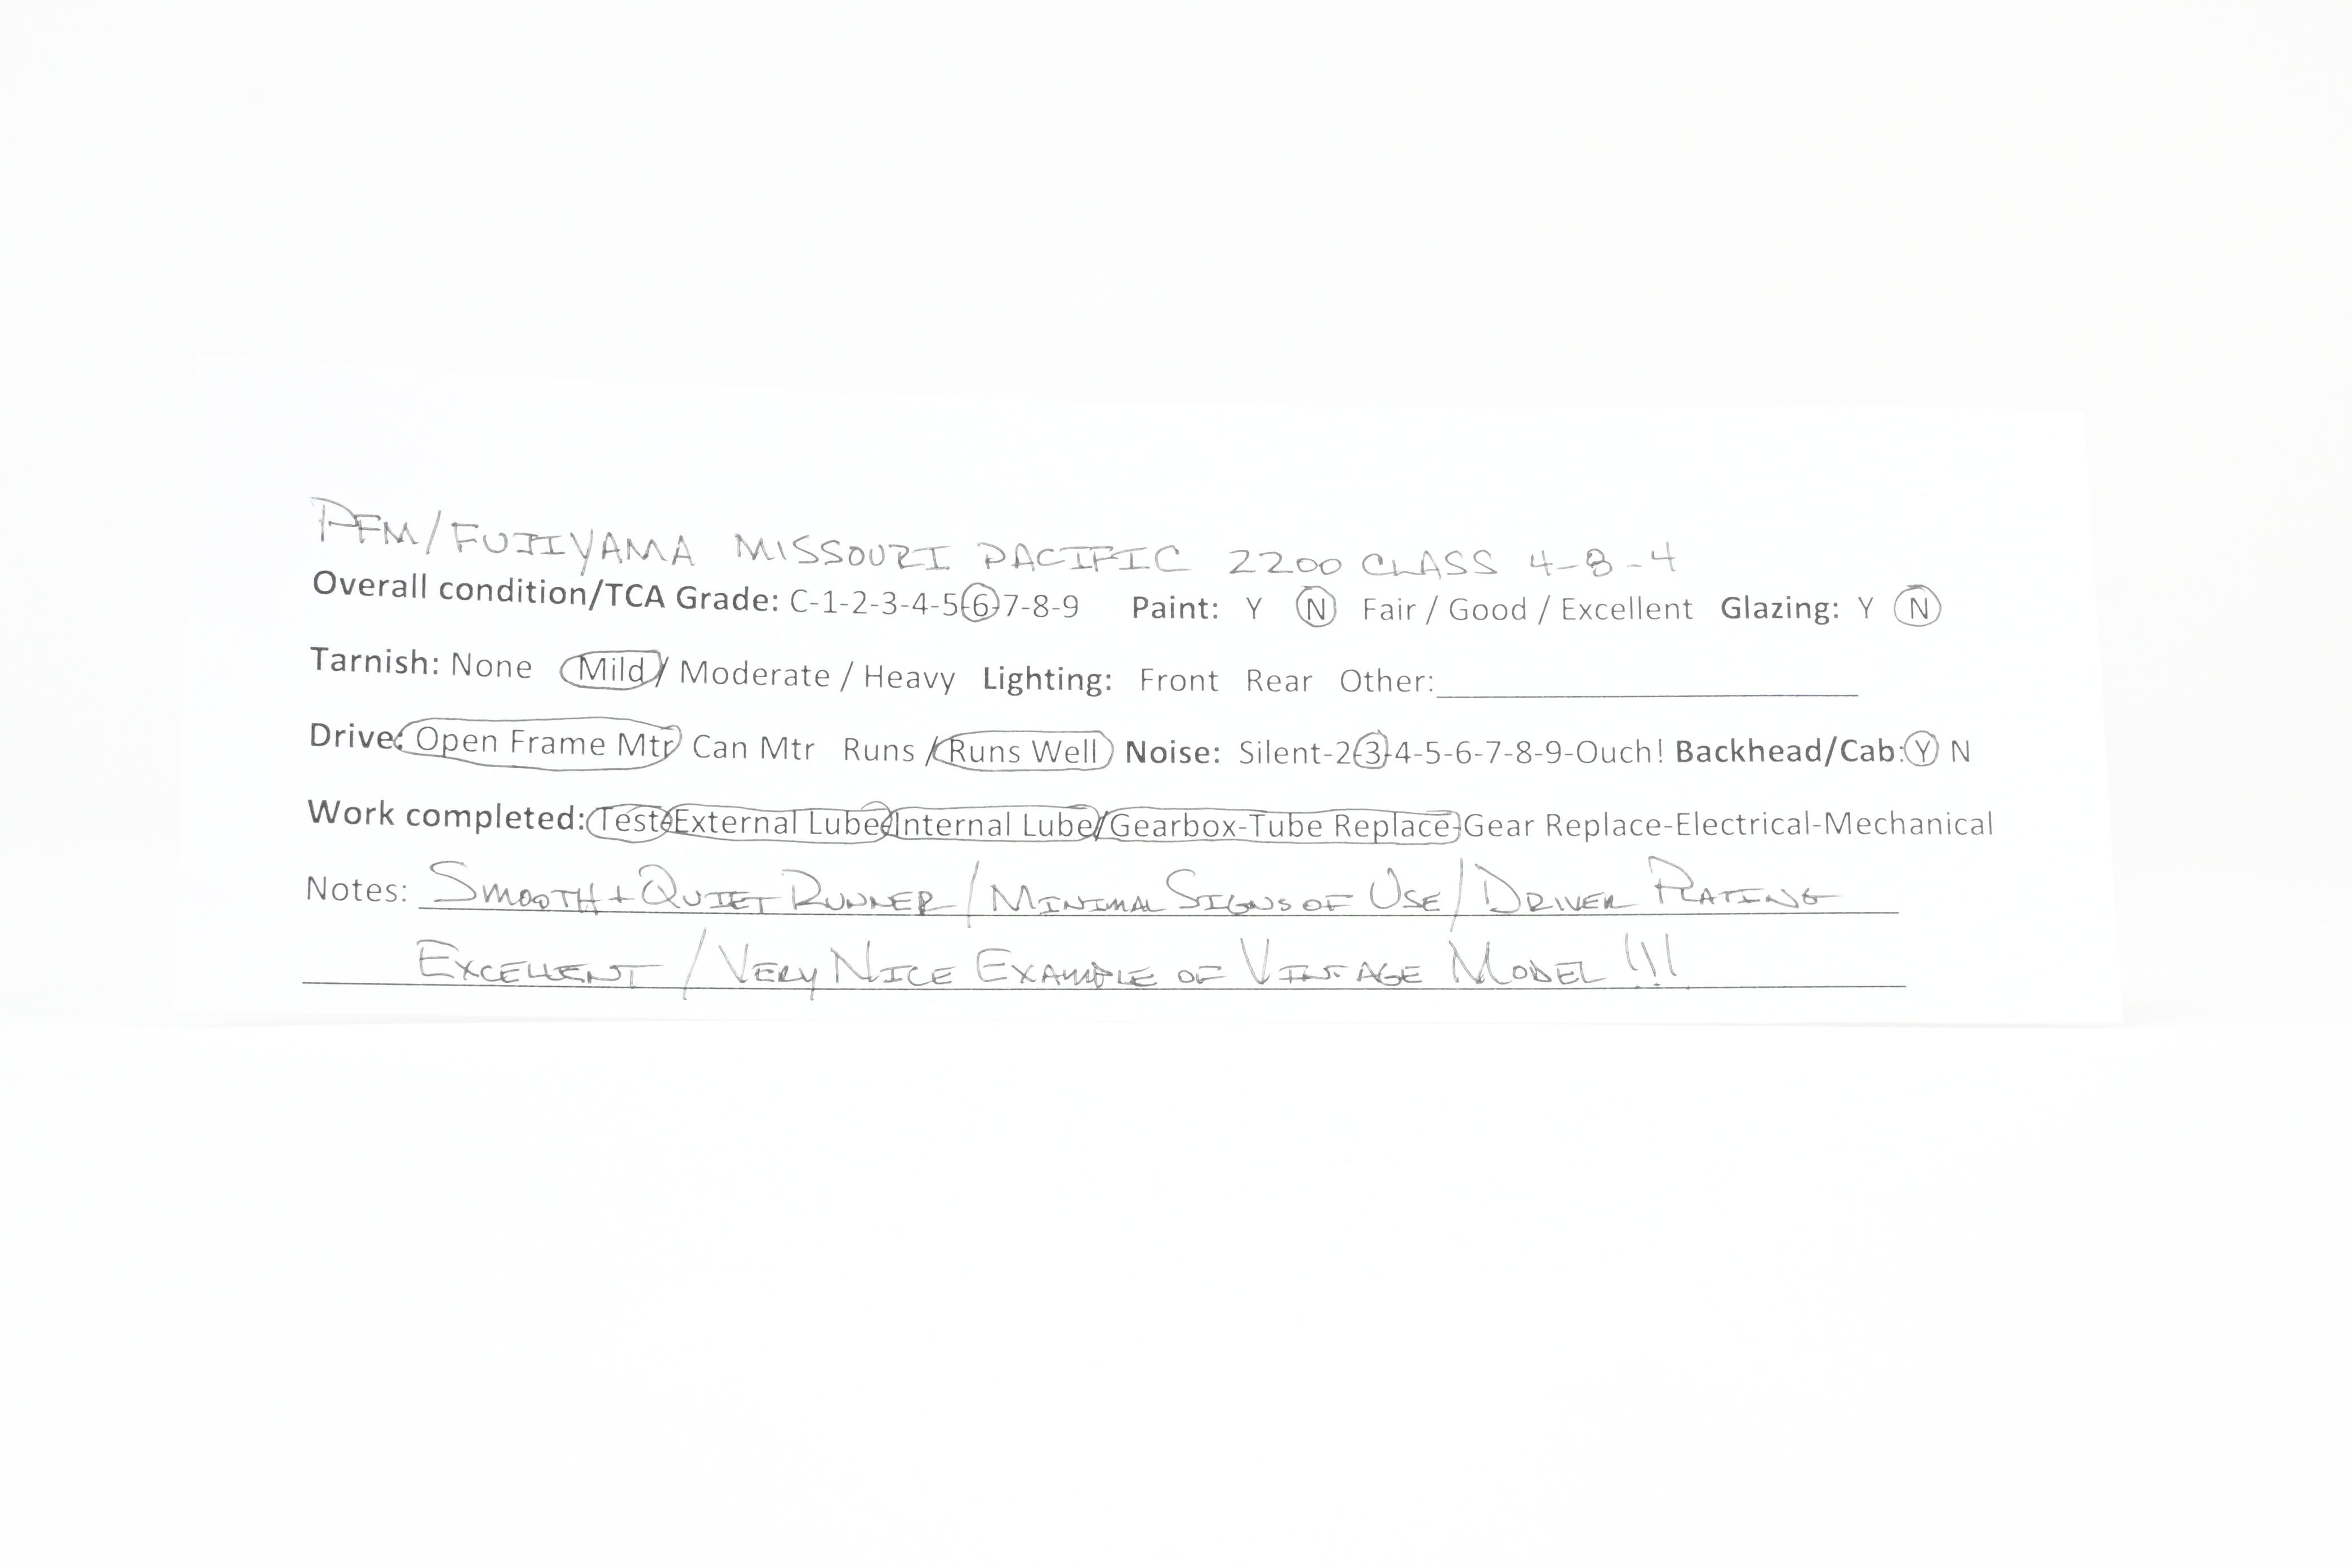 PFM/FUJIYAMA MISSOURI PACIFIC 2200 CLASS 4-8-4
Overall condition/TCA Grade: C-1-2-3-4-5-6-7-8-9 Paint: Y N Fair / Good / Excellent Glazing: Y N
Tarnish: None Mild / Moderate / Heavy Lighting: Front Rear Other:
Drive: Open Frame Mtr Can Mtr Runs / Runs Well Noise: Silent-2-3-4-5-6-7-8-9-Ouch! Backhead/Cab: Y N
Work completed: Test-External Lube-Internal Lube/Gearbox-Tube Replace-Gear Replace-Electrical-Mechanical
Notes: SMOOTH + QUIET RUNNER / MINIMAL SIGNS OF USE / DRIVER PLATING
EXCELLENT / VERY NICE EXAMPLE OF VINTAGE MODEL !!!